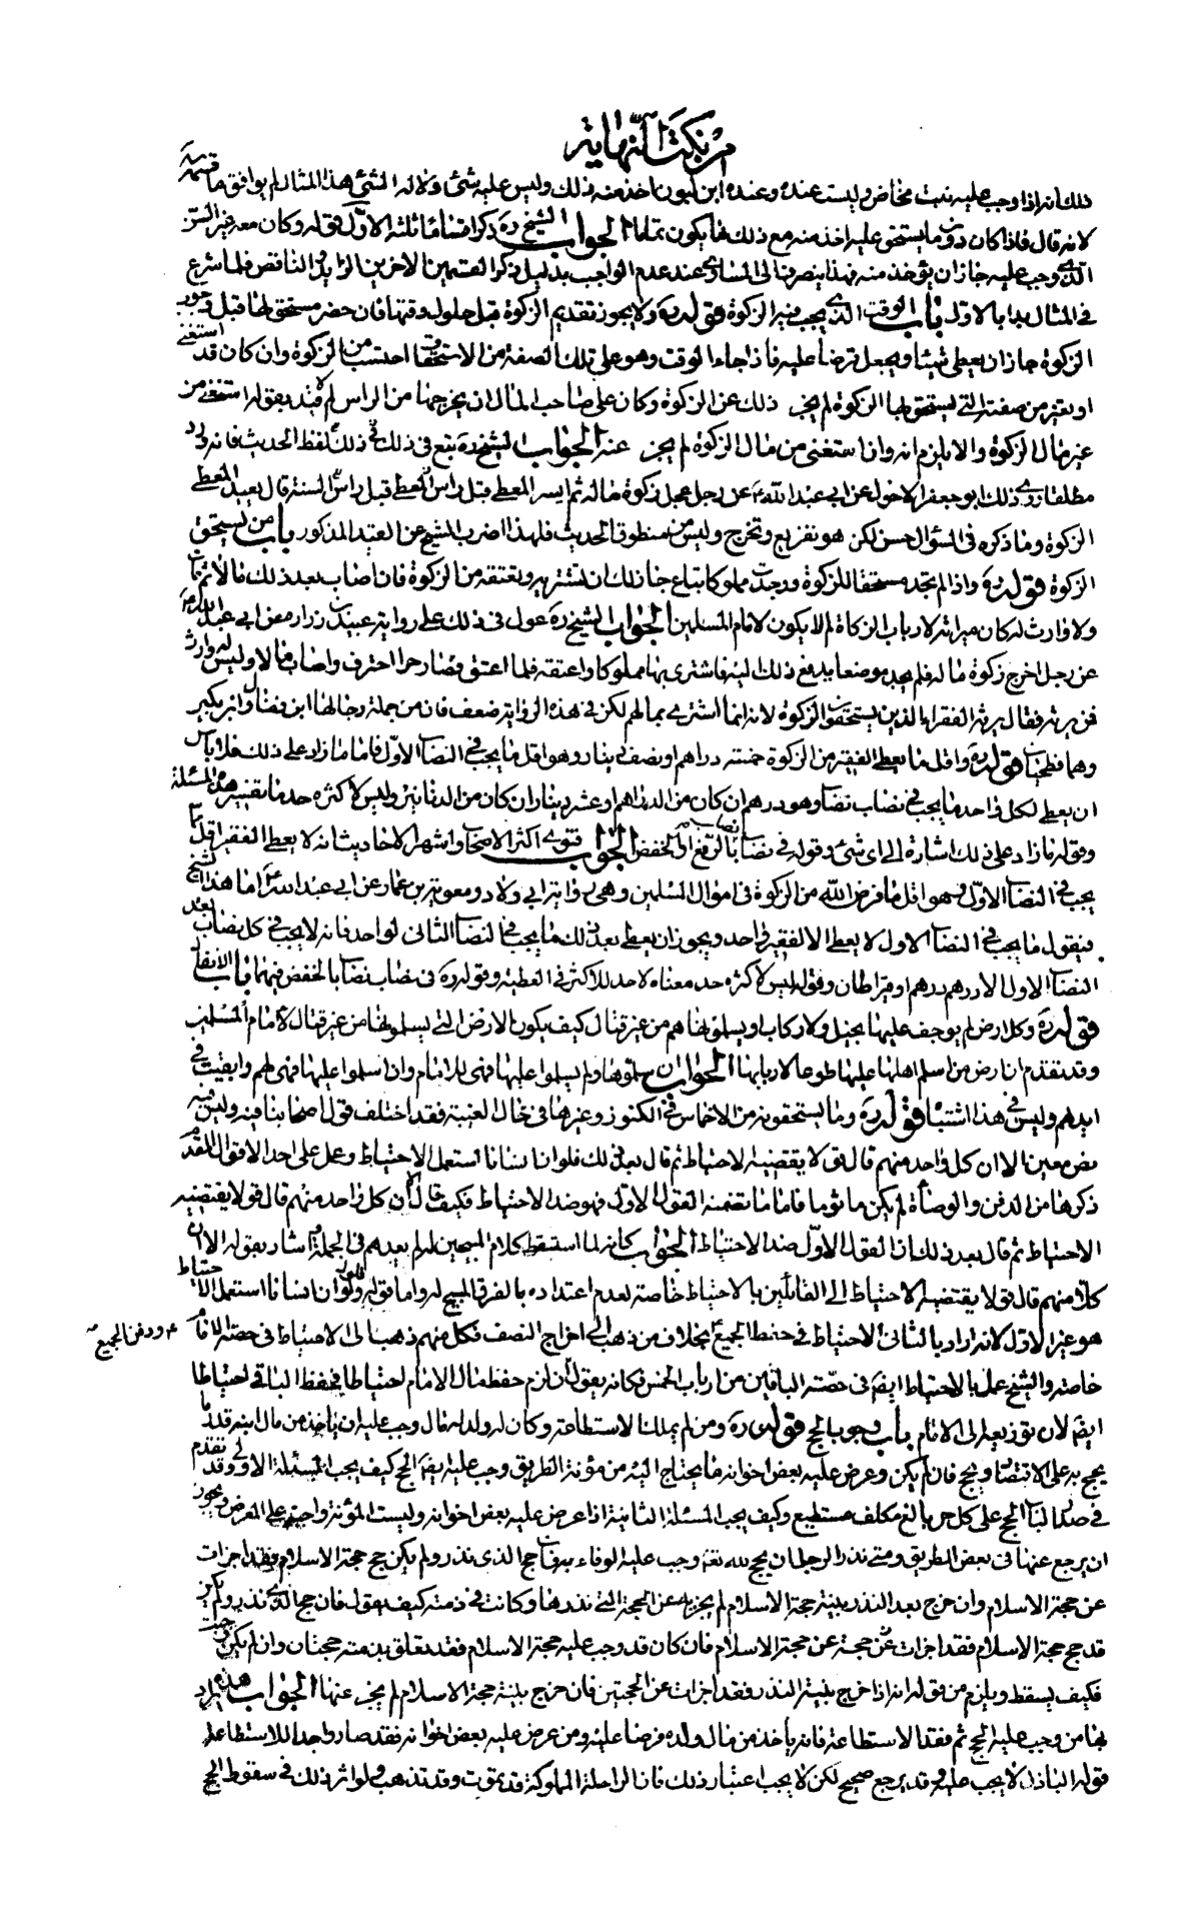 من نكت النهاية
ذلك انه اذا وجب عليه بنت مخاض وليست عنده وعنده ابن لبون اخذ منه ذلك وليس عليه شئ ولا له الشئ هذا المثال لم يوافق ما قسمه
لانه قال فاذا كان دون ما يستحق عليه اخذ منه مع ذلك ما يكون تماما الجواب الشيخ ره ذكر اقساما ثلثة الاول قوله وكان معه غير السن
الذي وجب عليه جاز ان يؤخذ منه فهذا ينصرف الى المساوي عند عدم الواجب بدليل ذكر القسمين الاخرين الزايد والناقص فلما شرع
في المثال بدا بالاول باب الوقت الذي يجب فيه الزكوة قوله ره ولا يجوز تقديم الزكوة قبل حلول وقتها فان حضر مستحق لها قبل وجوب
الزكوة جاز ان يعطى شيئا ويجعل قرضا عليه فاذا جاء الوقت وهو على تلك الصفة من الاستحقاق احتسب من الزكوة وان كان قد استغنى
او تغير من صفته التي يستحق بها الزكوة لم يجز ذلك عن الزكوة وكان على صاحب المال ان يخرجها من الراس لم لا قيد بقوله استغنى من
غير مال الزكوة والا يلزم انه وان استغنى من مال الزكوة لم يجز عنه الجواب الشيخ ره تبع في ذلك لفظ الحديث فانه ورد
مطلقا روى ذلك ابو جعفر الاحول عن ابي عبد الله ع عن رجل عجل زكوة ماله ثم ايسر المعطى قبل راس السنة قال يعيد المعطي
الزكوة وما ذكره في السؤال حسن لكن هو تفريع وتخرج وليس من منطوق الحديث فلهذا اضرب الشيخ عن القيد المذكور باب من يستحق
الزكوة قوله ره واذا لم يجد مستحقا للزكوة ووجدت مملوكا يباع جاز لك ان تشتريه وتعتقه من الزكوة فان اصاب بعد ذلك مالا ثم مات
ولا وارث له كان ميراثه لارباب الزكاة لم لا يكون لامام المسلمين الجواب الشيخ ره عول في ذلك على رواية عبيد بن زرارة عن ابي عبد الله ع
عن رجل اخرج زكوة ماله فلم يجد موضعا يدفع ذلك اليه فاشترى بها مملوكا واعتقه فلما اعتق وصار حرا احترف واصاب مالا وليس له وارث
فمن يرثه فقال يرثه الفقراء الذين يستحقون الزكوة لانه انما اشترى بمالهم لكن في هذه الرواية ضعف فان من جملة رجالها ابن فضال وابن بكير
وهما فطحيان قوله ره واقل ما يعطى الفقير من الزكوة خمسة دراهم او نصف دينار وهو اقل ما يجب في النصاب الاول فاما ما زاد على ذلك فلا باس
ان يعطى لكل واحد ما يجب في نصاب نصاب وهو درهم ان كان من الدراهم او عشر دينار ان كان من الدنانير وليس لاكثره حد ما تفسير هذه المسئلة
وقوله ما زاد على ذلك اشارة الى اي شئ وقوله في نصاب نصاب بالرفع او الخفض الجواب فتوى اكثر الاصحاب واشهر الاحاديث انه لا يعطى الفقير اقل ما
يجب في النصاب الاول فهو اقل ما فرض الله من الزكوة في اموال المسلمين وهي رواية ابي ولاد ومعوية بن عمار عن ابي عبد الله ع اما هذا الشيخ
فيقول ما يجب في النصاب الاول لا يعطى الا لفقير واحد ويجوز ان يعطى بعد ذلك ما يجب في النصاب الثاني لواحد فانه لا يجب في كل نصاب بعد
النصاب الاول الا درهم درهم او قيراطان وقوله ليس لاكثره حد معناه لا حد للاكثر في العطية وقوله ره في نصاب نصاب بالخفض فيهما باب الانفال
قوله ره وكل ارض لم يوجف عليها بخيل ولا ركاب او يسلموها هم من غير قتال كيف يكون الارض التي يسلموها من غير قتال لامام المسلمين
وقد تقدم ان ارض من اسلم اهلها عليها طوعا لاربابها الجواب ان سلموها ولم يسلموا عليها فهي للامام وان اسلموا عليها فهي لهم وابقيت في
ايديهم وليس في هذا اشتباه قوله ره وما يستحقونه من الاخماس في الكنوز وغيرها في حال الغيبة فقد اختلف قول اصحابنا فيه وليس فيه
نص معين الا ان كل واحد منهم قال قولا يقتضيه الاحتياط ثم قال بعد ذلك فلو ان انسانا استعمل الاحتياط وعمل على احد الاقوال المقدم
ذكرها من الدفن والوصاة لم يكن ماثوما فاما ما تضمنه القول الاول فهو ضد الاحتياط فكيف قال الا ان كل واحد منهم قال قولا يقتضيه
الاحتياط ثم قال بعد ذلك ان القول الاول ضد الاحتياط الجواب كانه لما استسقط كلام المبيحين له لم يعدهم في الجملة واشار بقوله الا ان
كلا منهم قال قولا يقتضيه الاحتياط الى القائلين بالاحتياط خاصة لعدم اعتداده بالفرق المبيح له واما قوله فلو ان انسانا استعمل الاحتياط
هو غير الاول لانه اراد بالثاني الاحتياط في حفظ الجميع بخلاف من ذهب الى اخراج النصف فكل منهم ذهب الى الاحتياط في حصة الامام
ودفن الجميع
خاصة والشيخ عمل بالاحتياط ايضا في حصة الباقين من ارباب الخمس فكانه يقول ان لزم حفظ مال الامام احتياطا فحفظ الباقي احتياطا
ايضا لان توزيعه الى الامام باب وجوب الحج قوله ره ومن لم يملك الاستطاعة وكان له ولد له مال وجب عليه ان ياخذ من مال ابنه قدر ما
يحج به على الاقتصاد ويحج فان لم يكن وعرض عليه بعض اخوانه ما يحتاج اليه من مؤنة الطريق وجب عليه ايضا الحج كيف يجب المسئلة الاولى وقد تقدم
في صدر الباب الحج على كل حر بالغ مكلف مستطيع وكيف يجب المسئلة الثانية اذا عرض عليه بعض اخوانه وليست المؤنة واجبة على المعرض ويجوز
ان يرجع عنها في بعض الطريق ومتى نذر الرجل ان يحج لله تعالى وجب عليه الوفاء به فان حج الذي نذر ولم يكن حج حجة الاسلام فقد اجزات
عن حجة الاسلام وان خرج بعد النذر بنية حجة الاسلام لم يجزيه عن الحجة التي نذرها وكانت في ذمته كيف يقول فان حج الذي نذر ولم يكن
قد حج حجة الاسلام فقد اجزات عن حجة عن حجة الاسلام فان كان قد وجب عليه حجة الاسلام فقد تعلق بذمته حجتان وان لم يكن وجبت
فكيف يسقط ويلزم من قوله انه اذا خرج بنية النذر فقد اجزات عن الحجتين فان خرج بنية حجة الاسلام لم يجز عنها الجواب هذه يراد
بها من وجب عليه الحج ثم فقد الاستطاعة فانه ياخذ من مال ولده قرضا عليه ومن عرض عليه بعض اخوانه فقد صار واجدا للاستطاعة
قوله الباذل لا يجب عليه وقد يرجع صحيح لكن لا يجب اعتبار ذلك فان الراحلة المملوكة قد تموت وقد تذهب ولو اثر ذلك في سقوط الحج